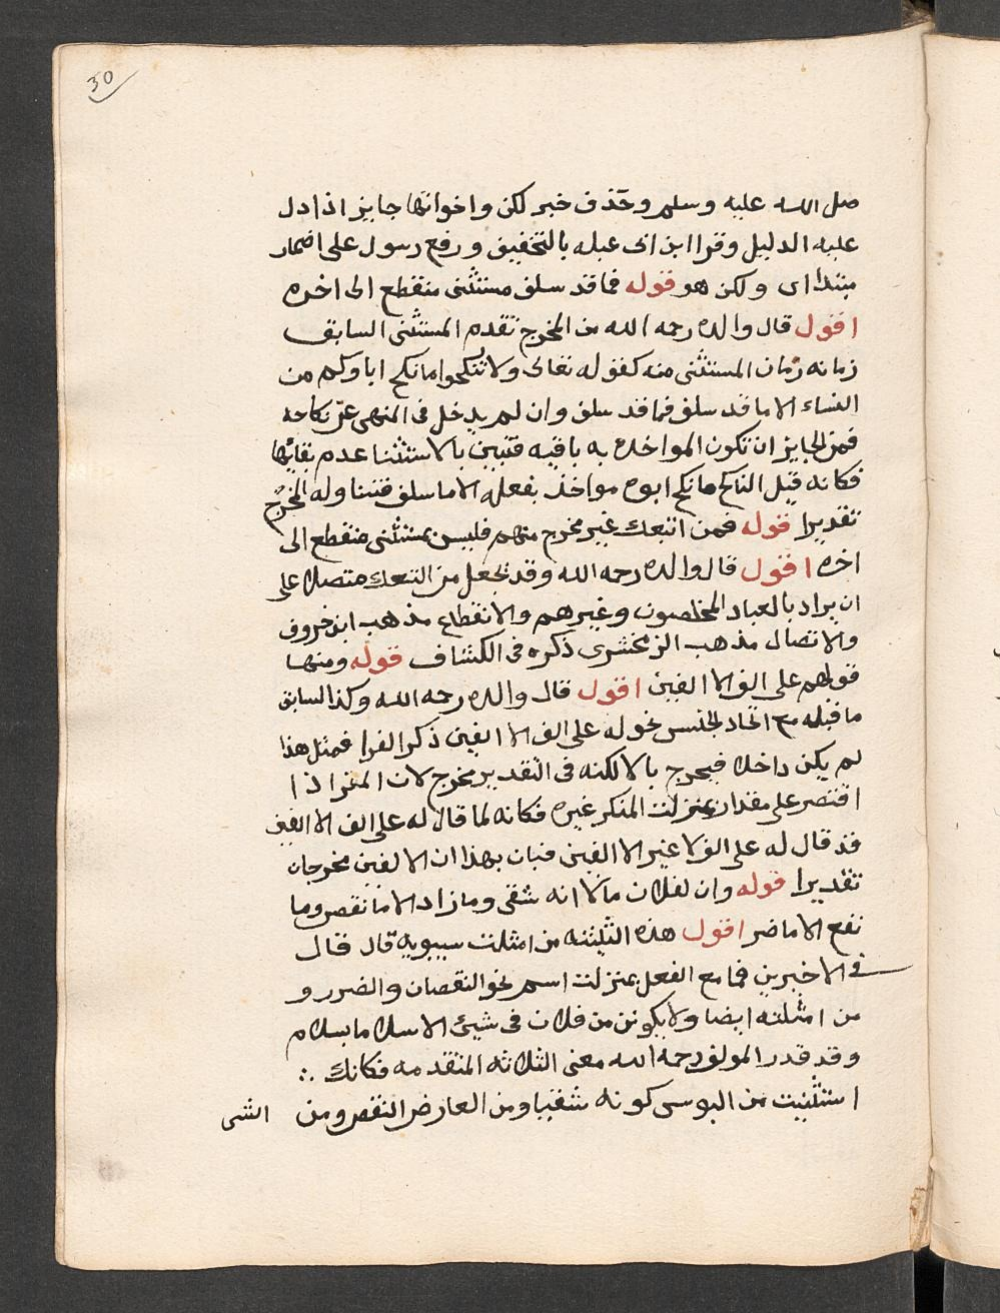 30
صلى الله عليه وسلم وحذف خبر لكن واخواتها جايز اذا دل
عليه الدليل وقرا ابن ابى عبله بالتخفيف ورفع رسول على اضمار
مبتدا اى ولكن هو قوله فما قد سلف مستثنى منقطع الى اخره
اقول قال والده رحمه الله من المخرج تقدم المستثنى السابق
زمانه زمان المستثنى منه كقوله تعالى ولا تنكحوا ما نكح اباوكم من
النساء الا ما قد سلف فما قد سلف وان لم يدخل فى المنهى عن نكاحه
فمن الجايز ان تكون المواخده به باقيه فتبين بالاستثنا عدم بقائها
فكانه قيل الناكح ما نكح ابوه مواخذ بفعله الا ما سلف فتناوله المخرج
تقديرا قوله فمن اتبعك غير مخرج منهم فليس بمستثنى منقطع الى
اخره اقول قال والده رحمه الله وقد يجعل من اتبعك متصلا على
ان يراد بالعباد المخلصون وغيرهم والانقطاع مذهب ابن خروف
والاتصال مذهب الزمخشرى ذكره فى الكشاف قوله ومنها
قولهم على الف الا الفين اقول قال والده رحمه الله وكذا السابق
ما قبله مع اتحاد الجنس نحو له على الف الا الفين ذكر الفرا فمثل هذا
لم يكن داخلا فيخرج بالا لكنه فى التقدير مخرج لان المقر اذا
اقتصر على مقدار بمنزلت المنكر غيره فكانه لما قال له على الف الا الفين
قد قال له على الف لا غير الا الفين فبان بهذا ان الالفين مخرجان
تقديرا قوله وان لفلان مالا الا انه شقى وما زاد الا ما نقص وما
نفع الا ما ضر اقول هذه الثلثه من امثلت سيبويه قال قال
فى الاخيرين فما مع الفعل بمنزلت اسم نحو النقصان والضرر و
من امثلته ايضا ولا يكونن من فلان فى شيئ الا سلاما بسلام
وقد قدر المولف رحمه الله معنى الثلاثه المتقدمه فكانك
استثنيت من البوسى كونه شقيا ومن العارض النقص ومن
الشى